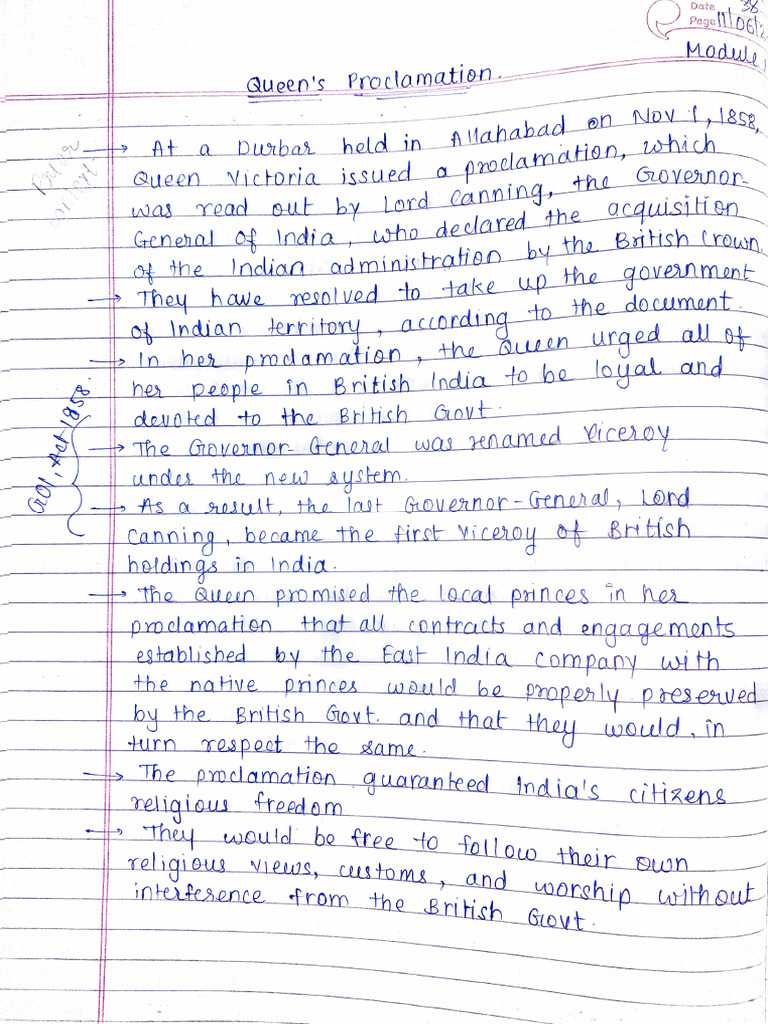 38
Date
Page 11/06/2
Module 1
Queen's Proclamation.
→ At a Durbar held in Allahabad on Nov 1, 1858,
Queen Victoria issued a proclamation, which
was read out by Lord Canning, the Governor-
General of India, who declared the acquisition
of the Indian administration by the British Crown.
→ They have resolved to take up the government
of Indian territory, according to the document.
→ In her proclamation, the Queen urged all of
her people in British India to be loyal and
devoted to the British Govt.
→ The Governor-General was renamed Viceroy
under the new system.
GOI, Act 1858.
→ As a result, the last Governor-General, Lord
Canning, became the first Viceroy of British
holdings in India.
→ The Queen promised the local princes in her
proclamation that all contracts and engagements
established by the East India company with
the native princes would be properly preserved
by the British Govt. and that they would, in
turn respect the same.
→ The proclamation guaranteed India's citizens
religious freedom
→ They would be free to follow their own
religious views, customs, and worship without
interference from the British Govt.